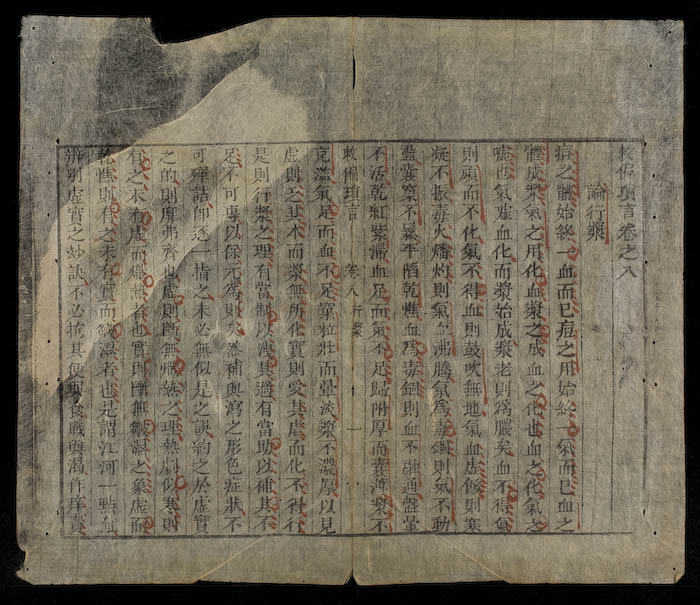 救偏瑣言卷之八
論行漿
痘之體始終一血而已痘之用始終一氣而已血之
體成漿氣之用化血漿之成血之化也血之化氣之
噓也氣虛血化而漿始成漿老則爲膿矣血不得氣
則頑而不化氣不得血則鼓吹無地氣血虛餒則寒
凝不振毒火燔灼則氣血沸騰氣爲毒錮則氣不動
盪囊窠不鬆平陷乾憔血爲毒錮則血不融通盤暈
不活乾紅紫滯血足而氣不足歸附厚而囊薄漿不
救偏瑣言 卷八 行漿 一
充滿氣足而血不足窠粒壯而暈淡漿不濃厚以見
虛則乏其本而漿無所化實則受其虐而化不得行
是則行漿之理有當制以洩其過有當助以補其不
足不可專以保元爲則矣蒸補與瀉之形色症狀不
可殫詰卽逐一揩之未必無似是之誤約之於虛實
之的則靡弗齊也虛則斷無燥熱之理熱則似寒則
有之未有虛而燥熱者也實則斷無皺濕之象虛而
乾憔則有之未有實而皺濕者也是謂江河一點血
辨別虛實之妙訣不必拾其便與食戲與渴作庠責